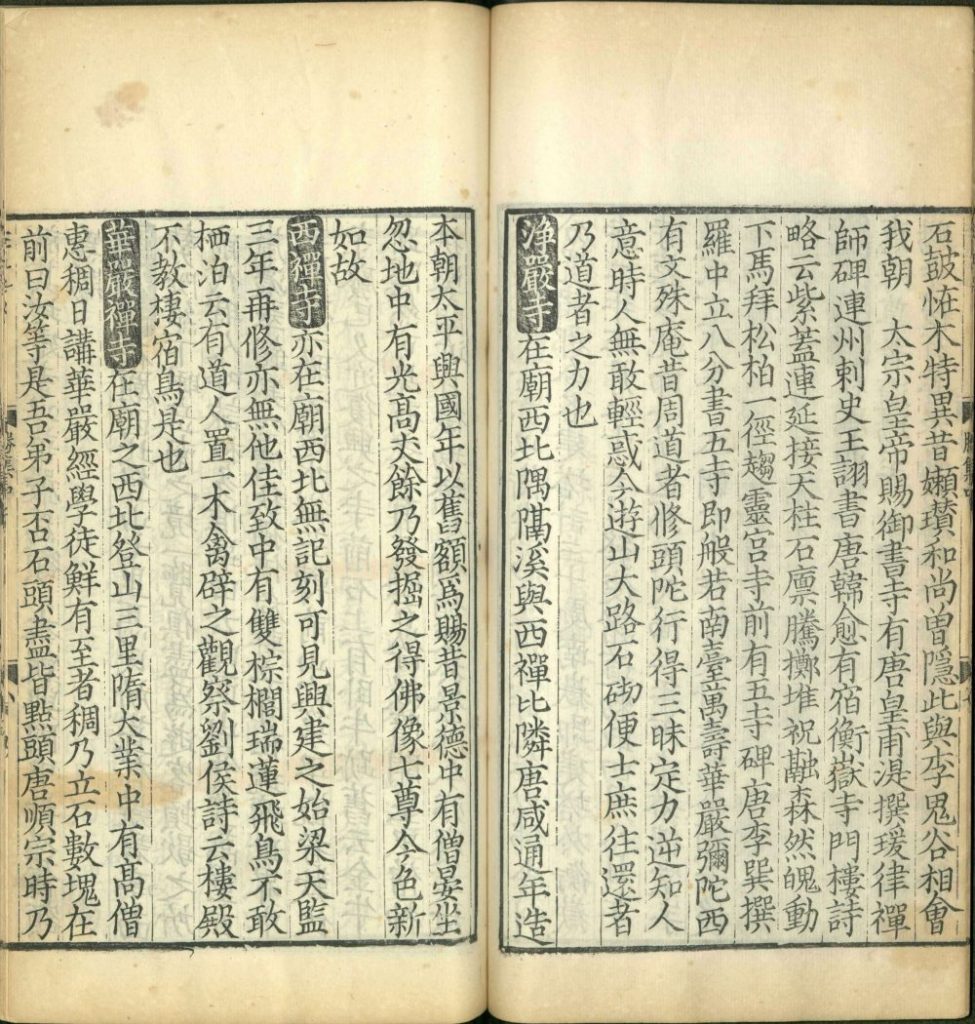 石鼓恠木特異昔嬾瓚和尚曽隱此與李鬼谷相會
我朝　太宗皇帝賜御書寺有唐皇甫湜撰瑗律禪
師碑連州刺史王詡書唐韓愈有宿衡嶽寺門樓詩
略云紫蓋連延接天柱石廪騰擲堆祝融森然魄動
下馬拜松柏一徑趨靈宮寺前有五寺碑唐李巽撰
羅中立八分書五寺即般若南臺萬壽華嚴彌陀西
有文殊庵昔周道者修頭陀行得三昧定力逆知人
意時人無敢輕惑今遊山大路石砌便士庶往還者
乃道者之力也
淨嚴寺在廟西北隅隔溪與西禪比隣唐咸通年造
本朝太平興國年以舊額爲賜昔景德中有僧晏坐
忽地中有光高丈餘乃發掘之得佛像七尊今色新
如故
西禪寺亦在廟西北無記刻可見興建之始梁天監
三年再修亦無他佳致中有雙棕櫚瑞蓮飛鳥不敢
栖泊云有道人置一木禽辟之觀察劉侯詩云樓殿
不教棲宿鳥是也
華嚴禪寺在廟之西北登山三里隋大業中有髙僧
惠稠日講華嚴經學徒鮮有至者稠乃立石數塊在
前曰汝等是吾弟子否石頭盡皆點頭唐順宗時乃